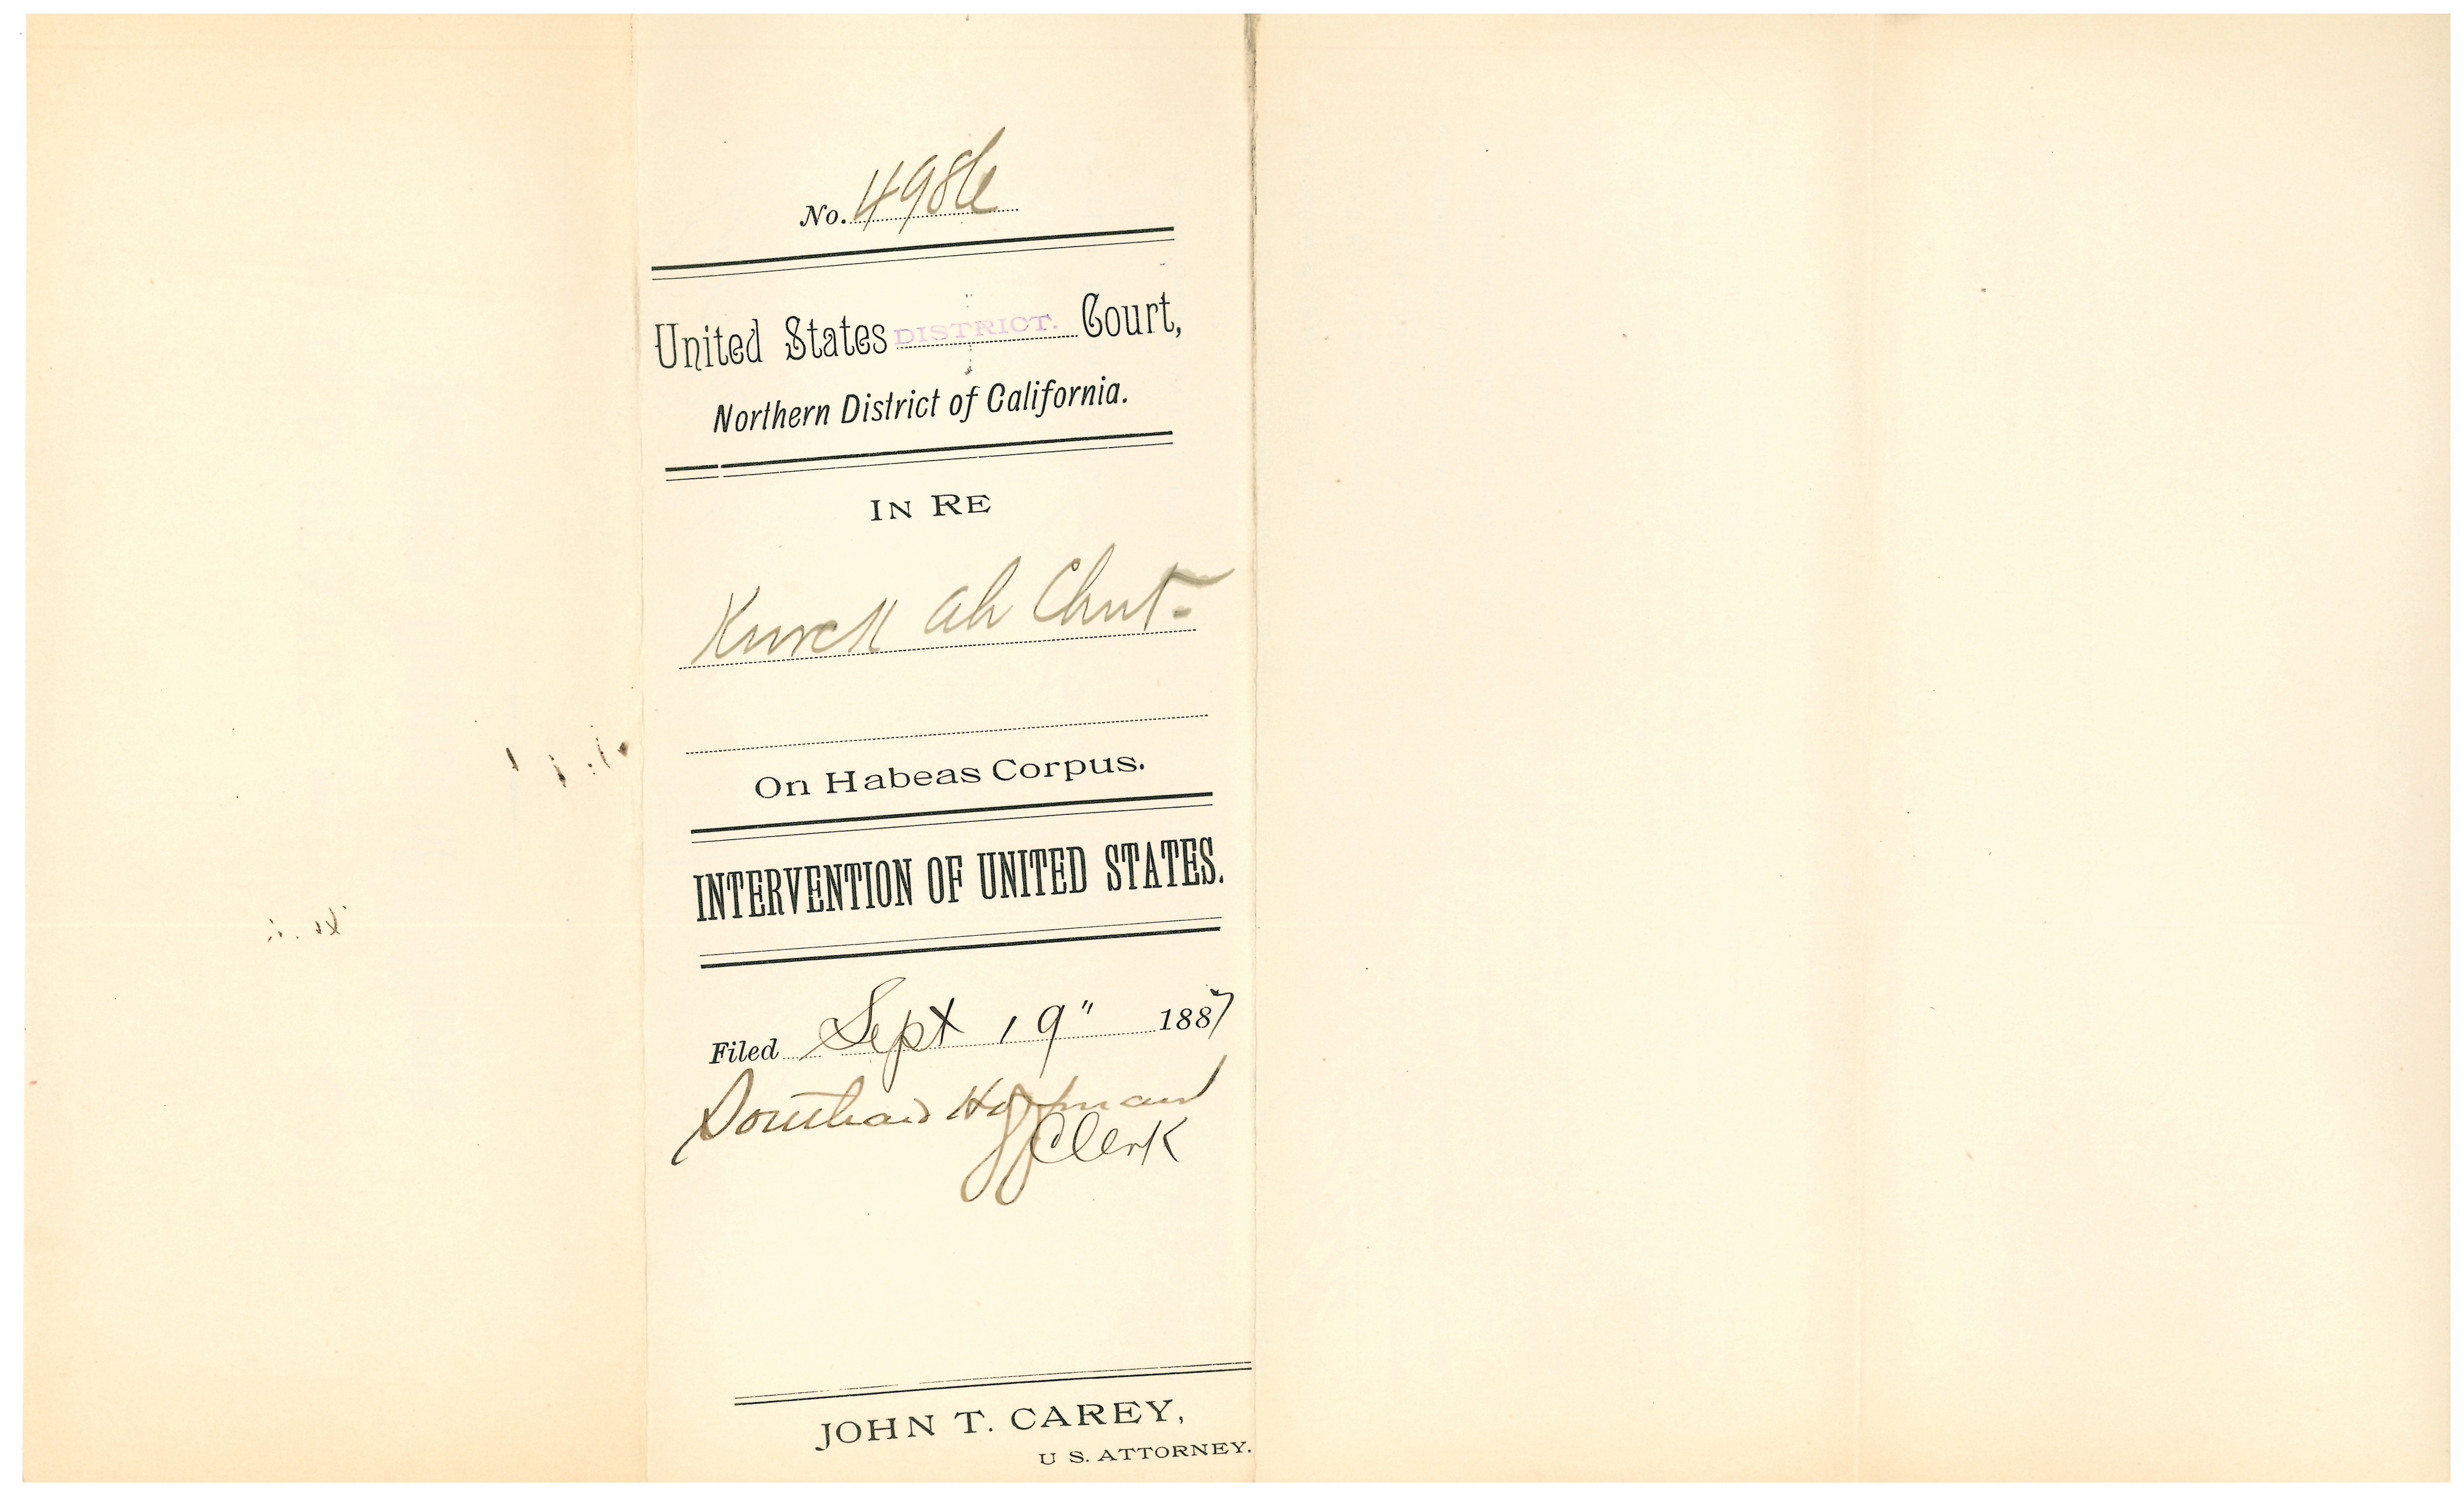 No. 4986
United States DISTRICT. Court,
Northern District of California.
IN RE
Ah Chut
On Habeas Corpus.
INTERVENTION OF UNITED STATES.
Filed Sept 19" 1887
Southard Hoffman
Clerk
JOHN T. CAREY,
U S. ATTORNEY.